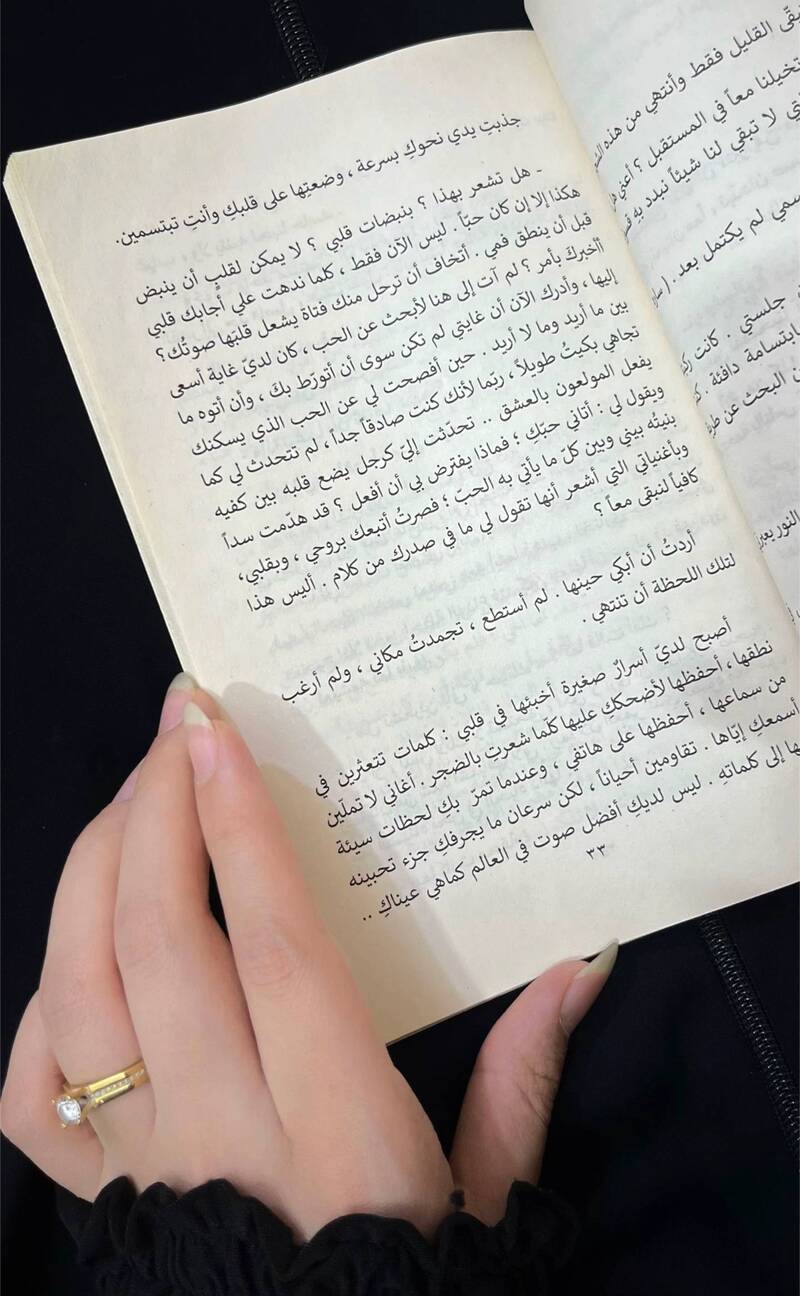 القليل فقط وأنتهي من هذه
تخيلنا معاً في المستقبل ؟ أعني
لا تبقي لنا شيئاً نبدد به
لم يكتمل بعد .
جلستي . كانت
بابتسامة دافئة .
البحث عن
النور
جذبتِ يدي نحوكِ بسرعة ، وضعتِها على قلبكِ وأنتِ تبتسمين.
- هل تشعر بهذا ؟ بنبضات قلبي ؟ لا يمكن لقلبٍ أن ينبض
هكذا إلا إن كان حبّاً . ليس الآن فقط ، كلما ندهت علي أجابك قلبي
قبل أن ينطق فمي . أتخاف أن ترحل منك فتاة يشعل قلبَها صوتُك؟
أأخبركَ بأمر ؟ لم آت إلى هنا لأبحث عن الحب ، كان لديّ غاية أسعى
إليها ، وأدرك الآن أن غايتي لم تكن سوى أن أتورّط بكَ ، وأن أتوه ما
بين ما أريد وما لا أريد . حين أفصحت لي عن الحب الذي يسكنك
تجاهي بكيتُ طويلاً ، ربّما لأنك كنت صادقاً جداً ، لم تتحدث لي كما
يفعل المولعون بالعشق .. تحدّثت إليّ كرجل يضع قلبه بين كفيه
ويقول لي : أتاني حبّكِ ؛ فماذا يفترض بي أن أفعل ؟ قد هدّمت سداً
بنيتُه بيني وبين كلّ ما يأتي به الحبّ ؛ فصرتُ أتبعك بروحي ، وبقلبي،
وبأغنياتي التي أشعر أنها تقول لي ما في صدرك من كلام . أليس هذا
كافياً لنبقى معاً ؟
أردتُ أن أبكي حينها . لم أستطع ، تجمدتُ مكاني ، ولم أرغب
لتلك اللحظة أن تنتهي .
أصبح لديّ أسرارٌ صغيرة أخبئها في قلبي : كلمات تتعثرين في
نطقها، أحفظها لأضحككِ عليها كلّما شعرتِ بالضجر . أغاني لا تملّين
من سماعها ، أحفظها على هاتفي ، وعندما تمرّ بكِ لحظات سيئة
أسمعكِ إيّاها . تقاومين أحياناً ، لكن سرعان ما يجرفكِ جزء تحبينه
إلى كلماتهِ . ليس لديكِ أفضل صوت في العالم كماهي عيناكِ ..
٣٣